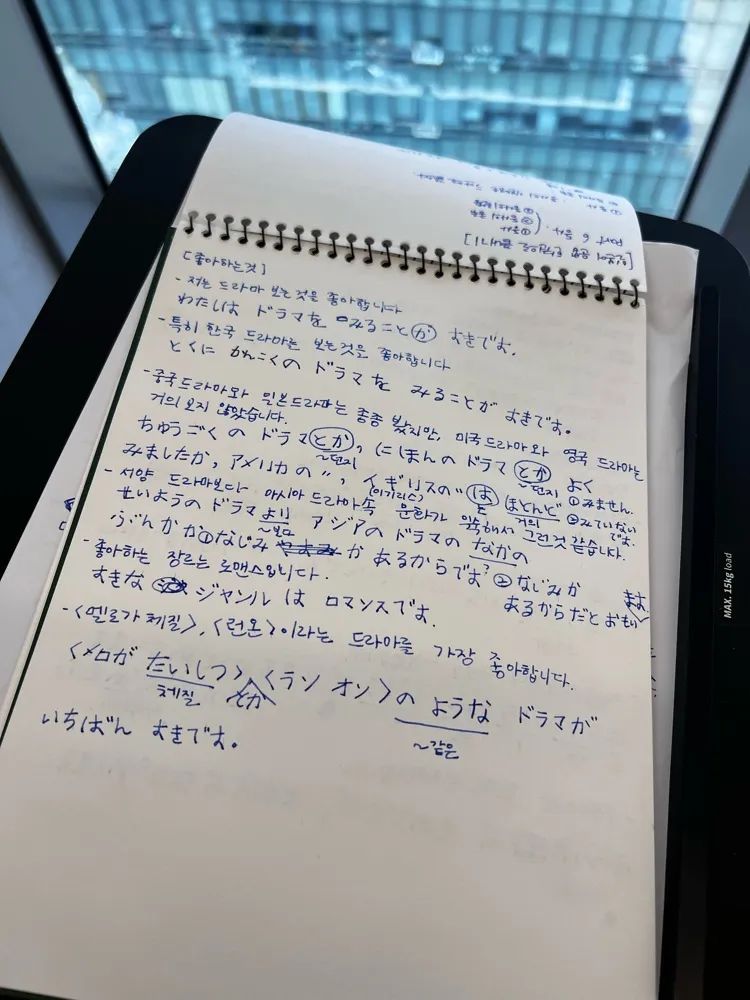 [좋아하는것]
- 저는 드라마 보는것을 좋아합니다
わたしは ドラマを みること が すきです。
- 특히 한국 드라마는 보는것을 좋아합니다
とくに かんこくの ドラマを みることが すきです。
- 중국드라마와 일본드라마는 종종 봤지만, 미국드라마와 영국 드라마는
거의 보지 않았습니다.
ちゅうごくの ドラマ とか, にほんの ドラマ とか よく
~던지 ~던지 ①みません.
みましたが, アメリカの〃, イギリスの〃 は ほとんど ②みていない
(이기리스) 거의 です.
- 서양 드라마보다 아시아 드라마속 문화가 익숙해서 그런것 같습니다.
せいようの ドラマ より アジアの ドラマの なかの
~보다
ぶんかが ①なじみ が あるからです? ②なじみが
あるからだと おもい ます.
- 좋아하는 장르는 로맨스입니다.
すきな ジャンル は ロマンスです。
- <멜로가 체질>, <런온>이라는 드라마를 가장 좋아합니다.
<メロが たいしつ> とか <ラン オン>の ような ドラマが
체질 ~같은
いちばん すきです。
MAX. 15kg load